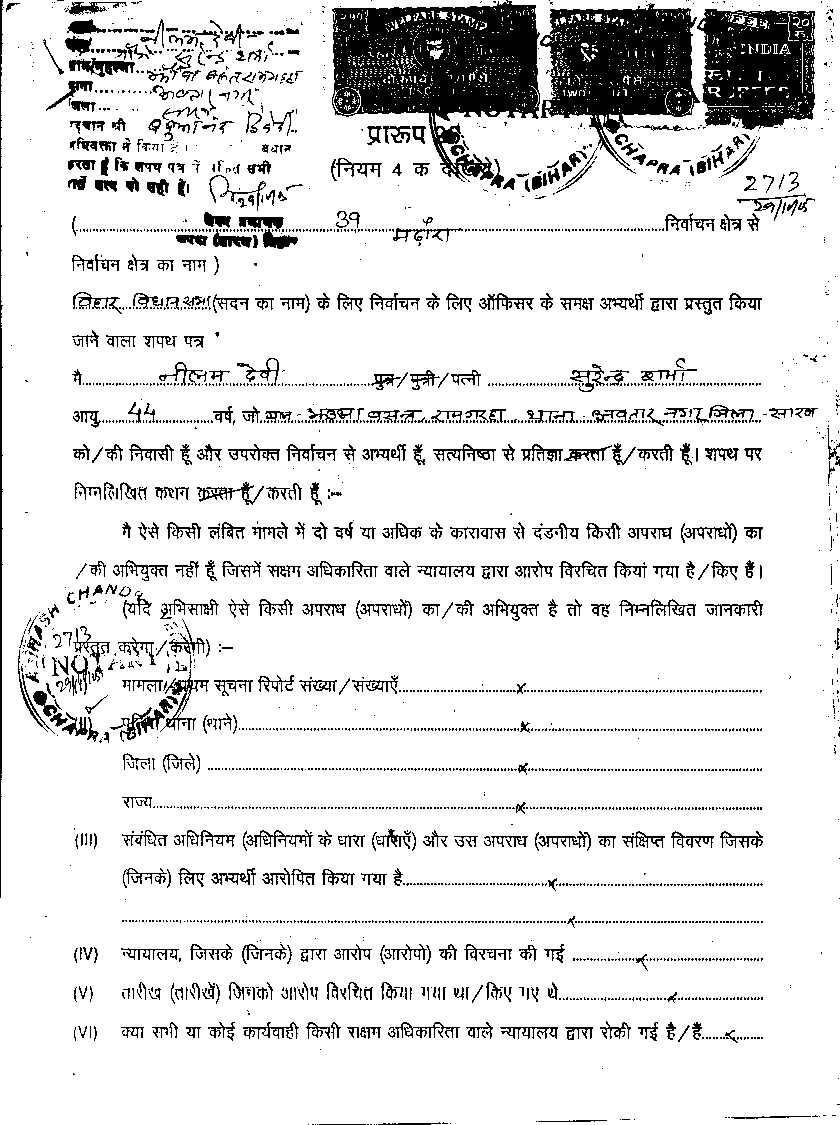 नीलम देवी
WELFARE STAMP
WELFARE STAMP
INDIA
NOTARY
CHAPRA (BIHAR)
CHAPRA (BIHAR)
प्रारूप
(नियम 4 क
अधिवक्ता ने किया है।
करता हूँ कि शपथ पत्र में सभी
27/3
(.......... 39 मढ़ौरा ..........निर्वाचन क्षेत्र से
निर्वाचन क्षेत्र का नाम )
बिहार विधान सभा (सदन का नाम) के लिए निर्वाचन के लिए ऑफिसर के समक्ष अभ्यर्थी द्वारा प्रस्तुत किया
जाने वाला शपथ पत्र
मै.......... नीलम देवी ..........पुत्र/पुत्री/पत्नी .......... सुरेन्द्र शर्मा
आयु.... 44 ....वर्ष, जो रामगढ़ा थाना अवतार नगर जिला - सारण
को/की निवासी हूँ और उपरोक्त निर्वाचन से अभ्यर्थी हूँ, सत्यनिष्ठा से प्रतिज्ञा करता हूँ/करती हूँ। शपथ पर
निम्नलिखित कथन करता हूँ/करती हूँ :-
मै ऐसे किसी लंबित मामले में दो वर्ष या अधिक के कारावास से दंडनीय किसी अपराध (अपराधों) का
/की अभियुक्त नहीं हूँ जिसमें सक्षम अधिकारिता वाले न्यायालय द्वारा आरोप विरचित किया गया है/किए हैं।
(यदि अभिसाक्षी ऐसे किसी अपराध (अपराधों) का/की अभियुक्त है तो वह निम्नलिखित जानकारी
प्रस्तुत करेगा/करेगी) :-
27/3
NOTARY
CHAPRA (BIHAR)
मामला/प्रथम सूचना रिपोर्ट संख्या/संख्याएँ..........x..........
(II) पुलिस थाना (थाने)..........x..........
जिला (जिले) ..........x..........
राज्य..........x..........
(III) संबंधित अधिनियम (अधिनियमों के धारा (धाराएँ) और उस अपराध (अपराधों) का संक्षिप्त विवरण जिसके
(जिनके) लिए अभ्यर्थी आरोपित किया गया है..........x..........
..........x..........
(IV) न्यायालय, जिसके (जिनके) द्वारा आरोप (आरोपो) की विरचना की गई ..........x..........
(V) तारीख (तारीखें) जिनको आरोप विरचित किया गया था/किए गए थे..........x..........
(VI) क्या सभी या कोई कार्यवाही किसी सक्षम अधिकारिता वाले न्यायालय द्वारा रोकी गई है/हैं.....x.....